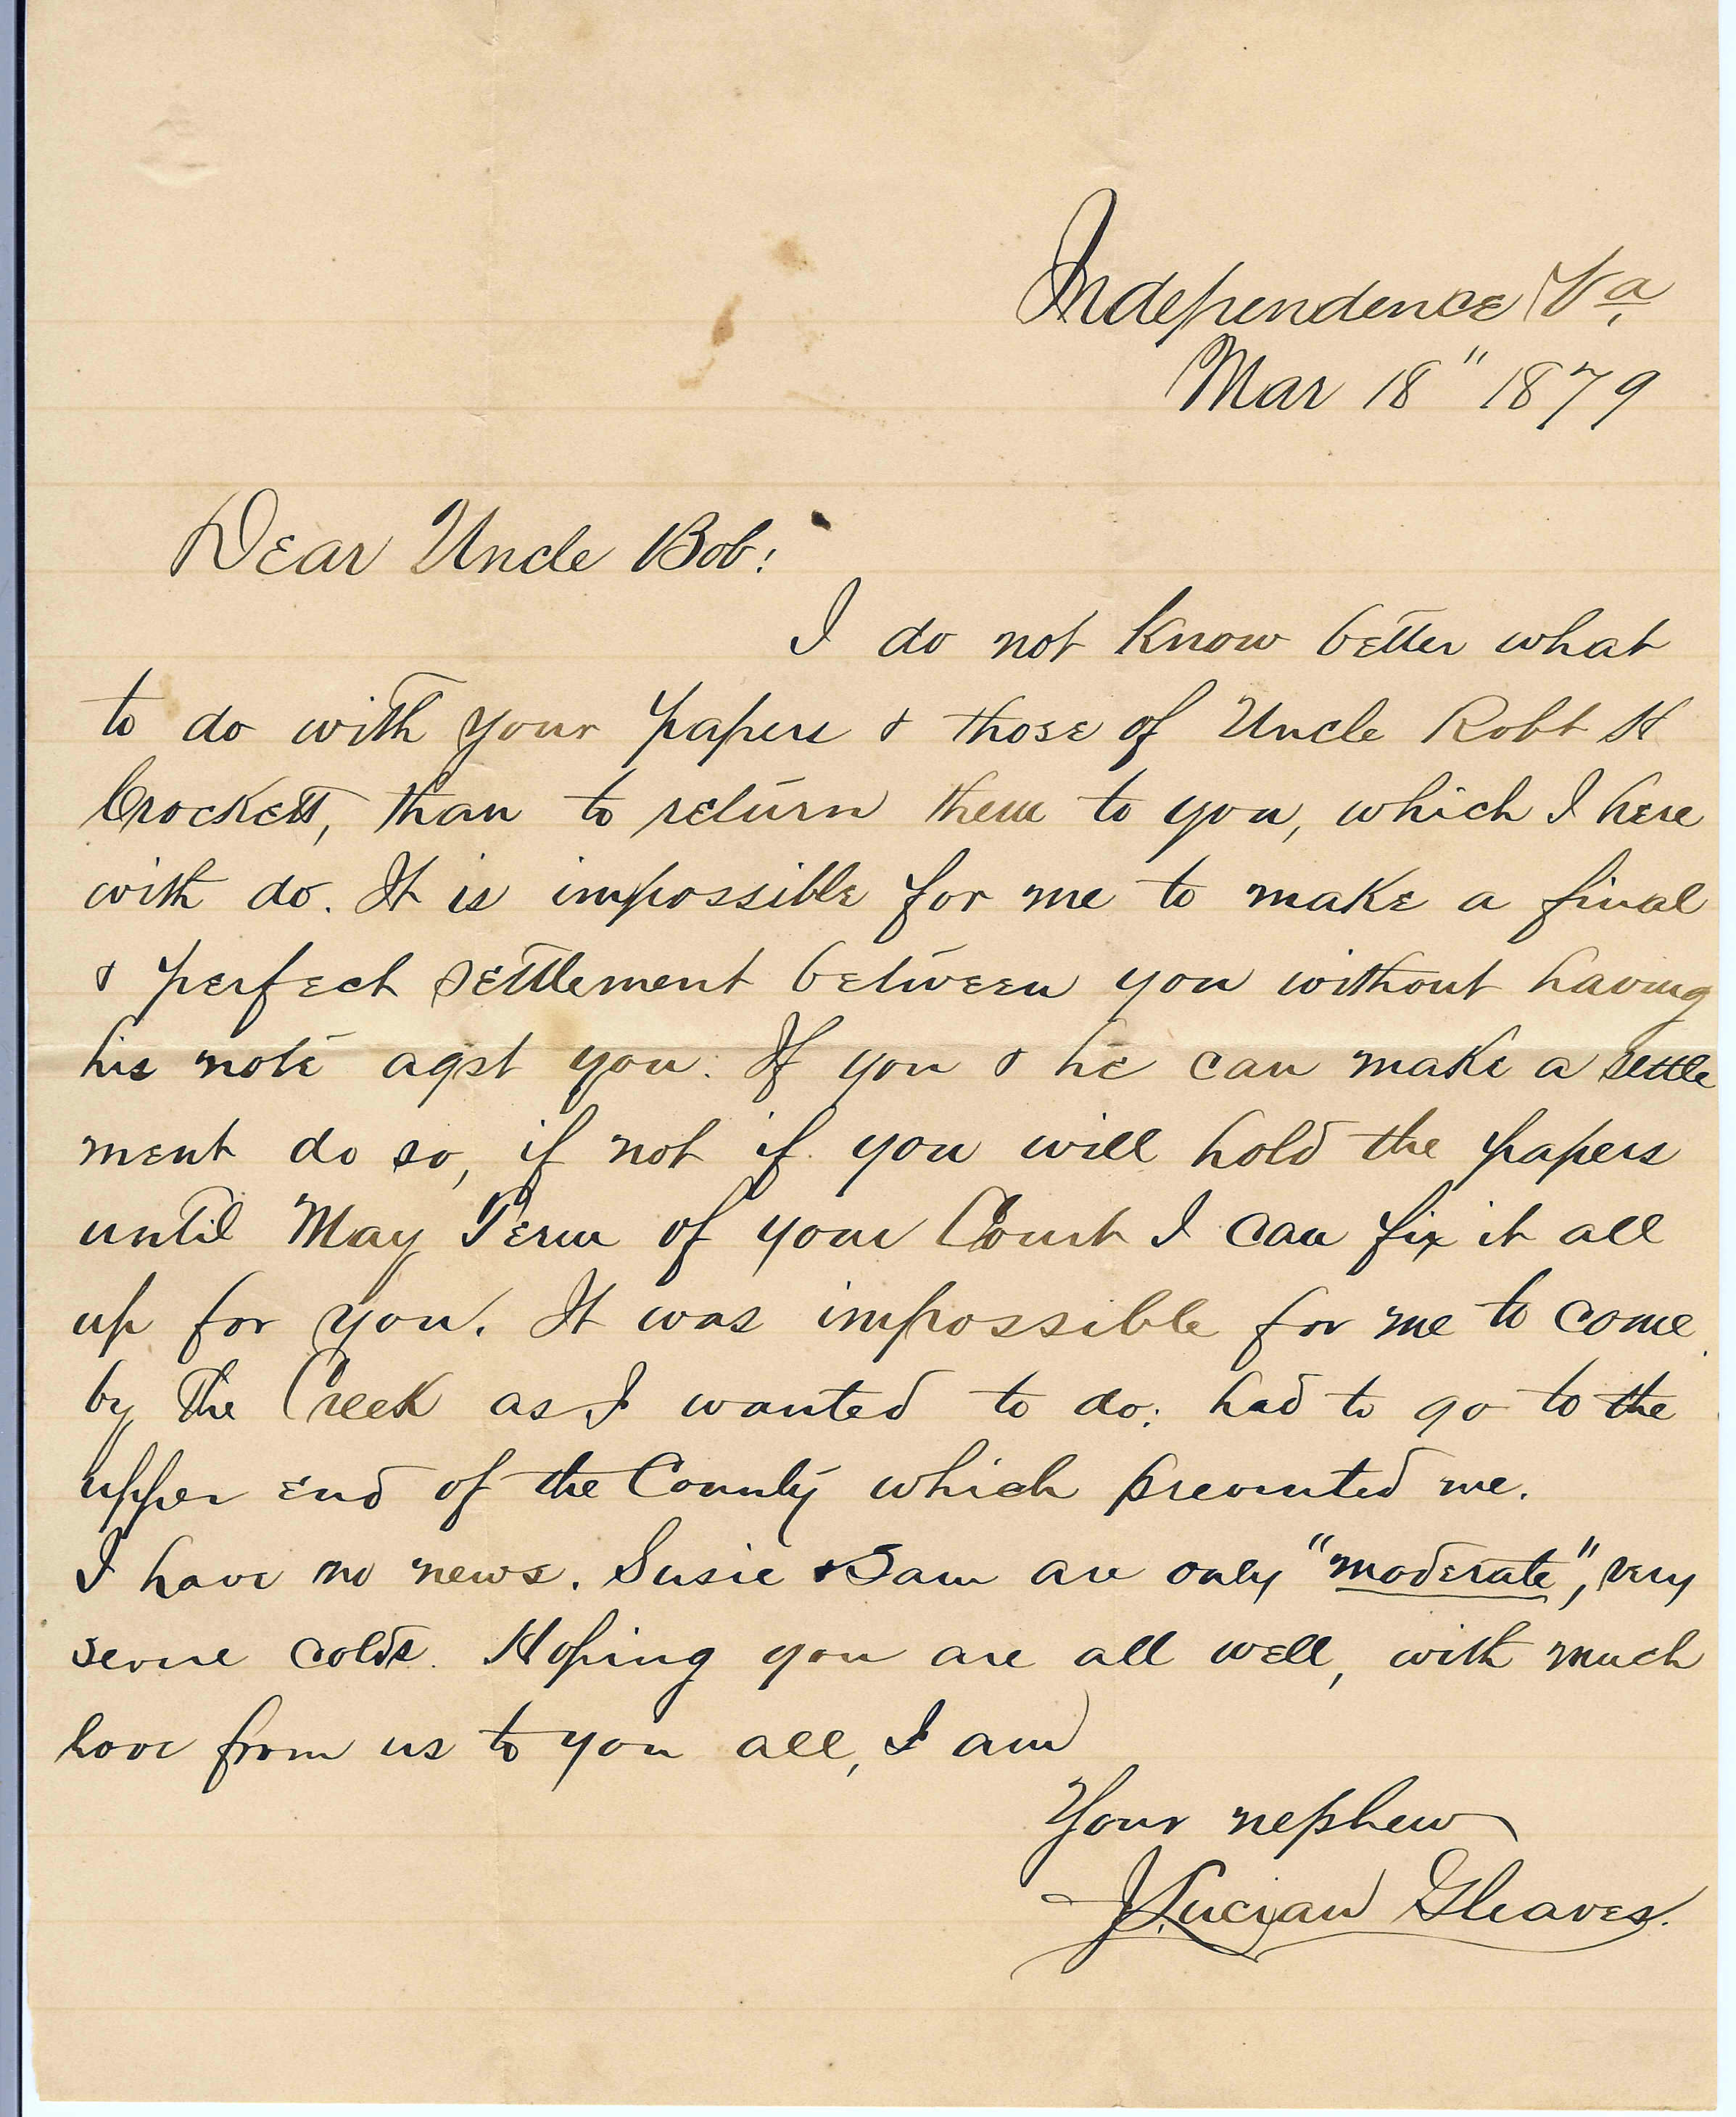 Independence Va,
Mar 18" 1879
Dear Uncle Bob:
I do not know better what
to do with your papers & those of Uncle Robt H
Crockett, than to return them to you, which I here
with do. It is impossible for me to make a final
& perfect settlement between you without having
his note agst you. If you & he can make a settle
ment do so, if not if you will hold the papers
until May Term of your Court I can fix it all
up for you. It was impossible for me to come
by the Creek as I wanted to do: had to go to the
upper end of the County which prevented me.
I have no news. Susie & Sam are only "moderate", very
severe colds. Hoping you are all well, with much
love from us to you all, I am
Your nephew
J. Lucian Gleaves.